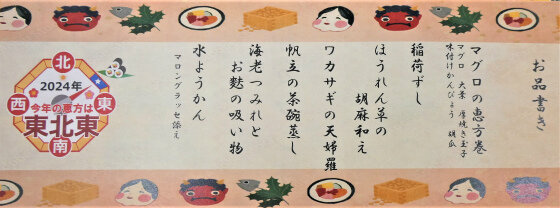 お品書き
マグロの恵方巻
マグロ 大葉 厚焼き玉子
味付けかんぴょう 胡瓜
稲荷ずし
ほうれん草の
胡麻和え
ワカサギの天婦羅
帆立の茶碗蒸し
海老つみれと
お麩の吸い物
水ようかん
マロングラッセ添え
北
2024年
西
今年の恵方は
東
東北東
南